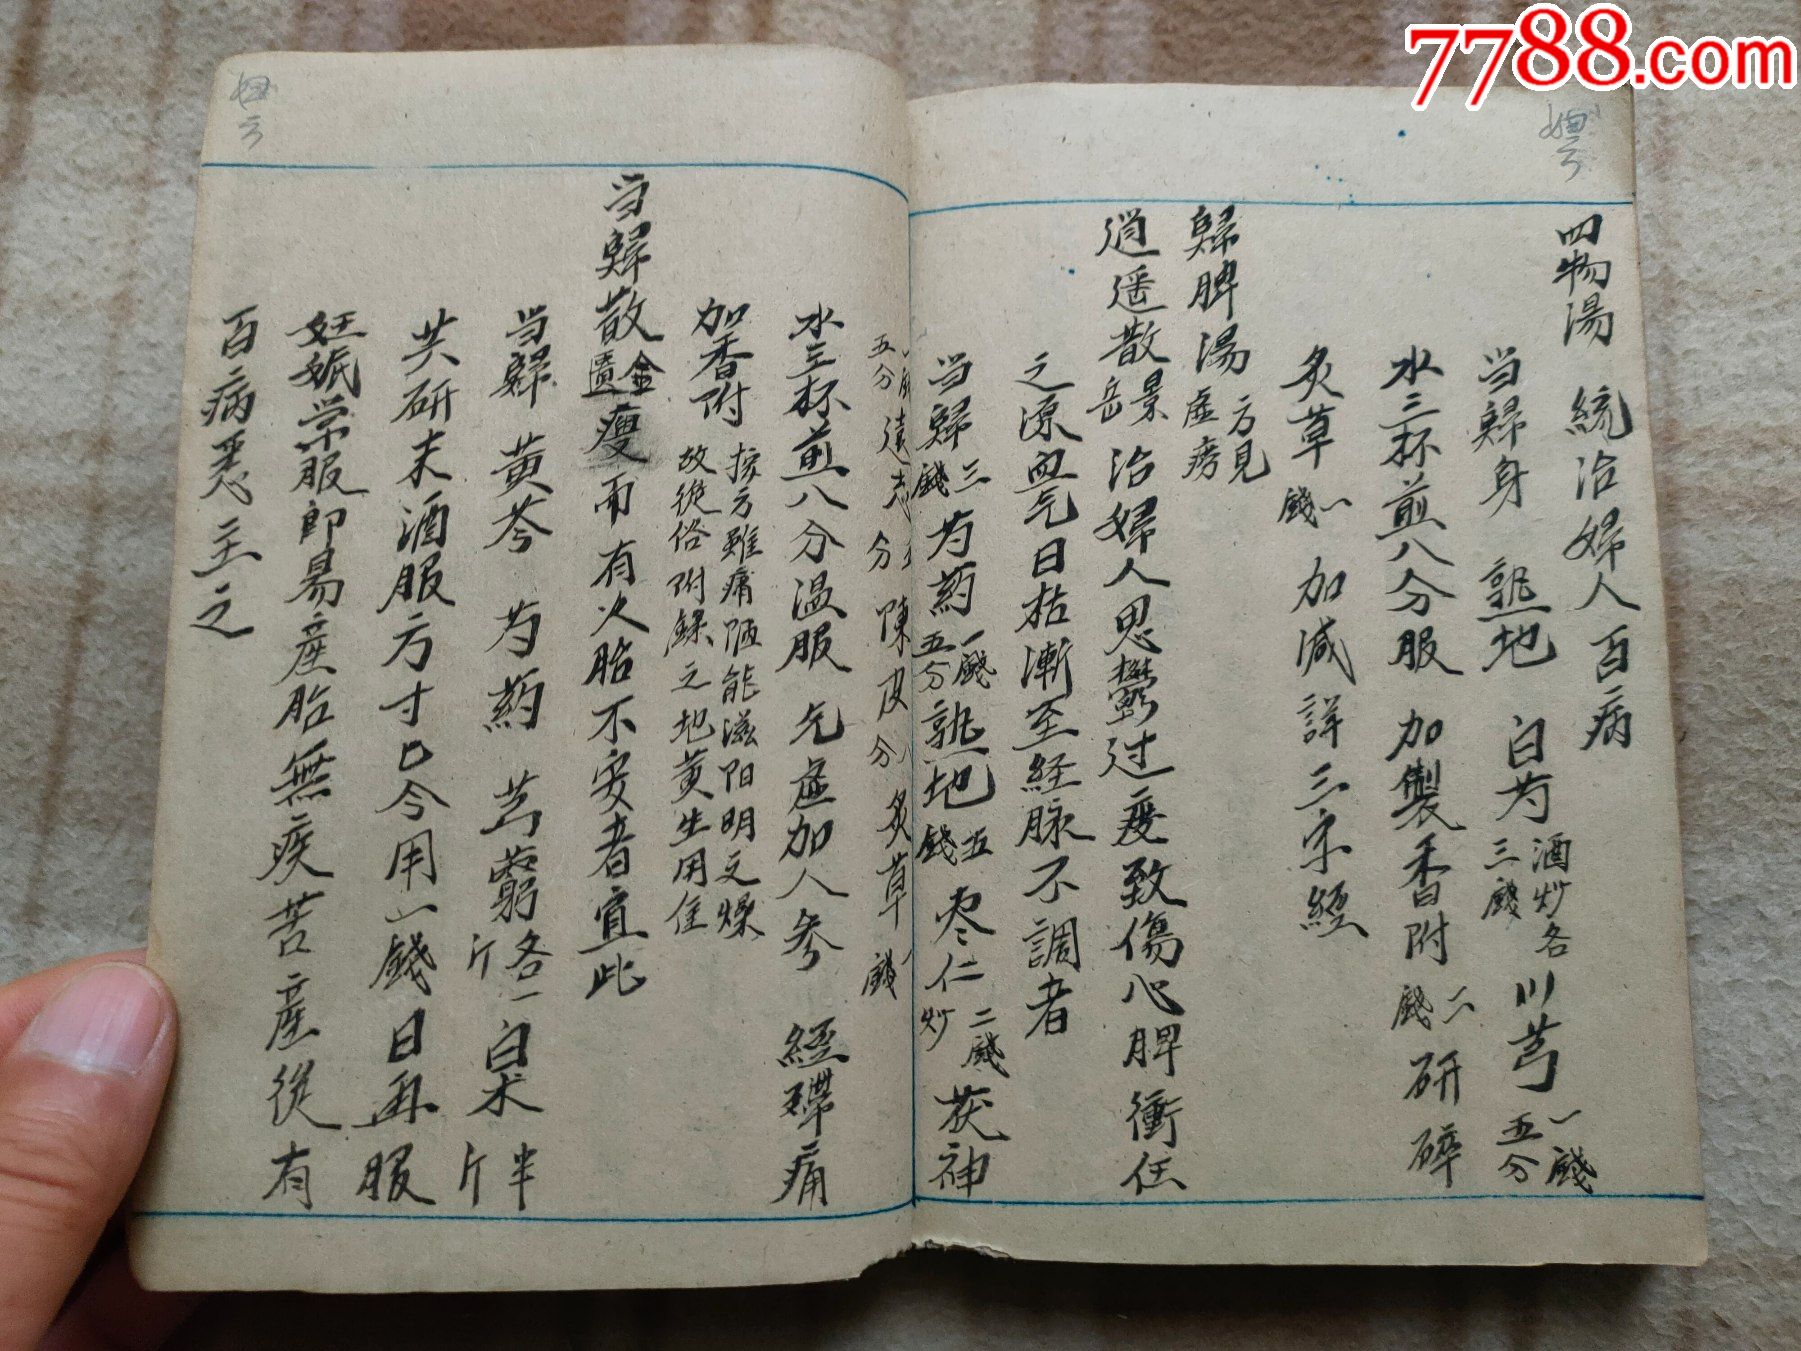 7788.com
四物湯 統治婦人百病
当歸身 熟地 白芍酒炒各三錢 川芎一錢五分
水三杯煎八分服 加製香附二錢研碎
炙草一錢 加减詳三字經
歸脾湯 方見虛癆
逍遥散景岳 治婦人思欝过度致傷心脾衝任
之源血气日枯漸至経脉不調者
当歸三錢 芍葯一錢五分 熟地五錢 枣仁炒二錢 茯神
一錢五分 遠志 分 陳皮 分 炙草 錢
水三杯煎八分温服 气虛加人參 經滯痛
加香附 按方雖庸陋能滋阳明之燥故從俗附錄之地黄生用佳
当歸散金匱 瘦而有火胎不安者宜此
当歸 黄芩 芍葯 芎藭各一斤 白术半斤
共研末酒服方寸匕今用一錢日再服
妊娠常服即易産胎無疾苦産後有
百病悉主之